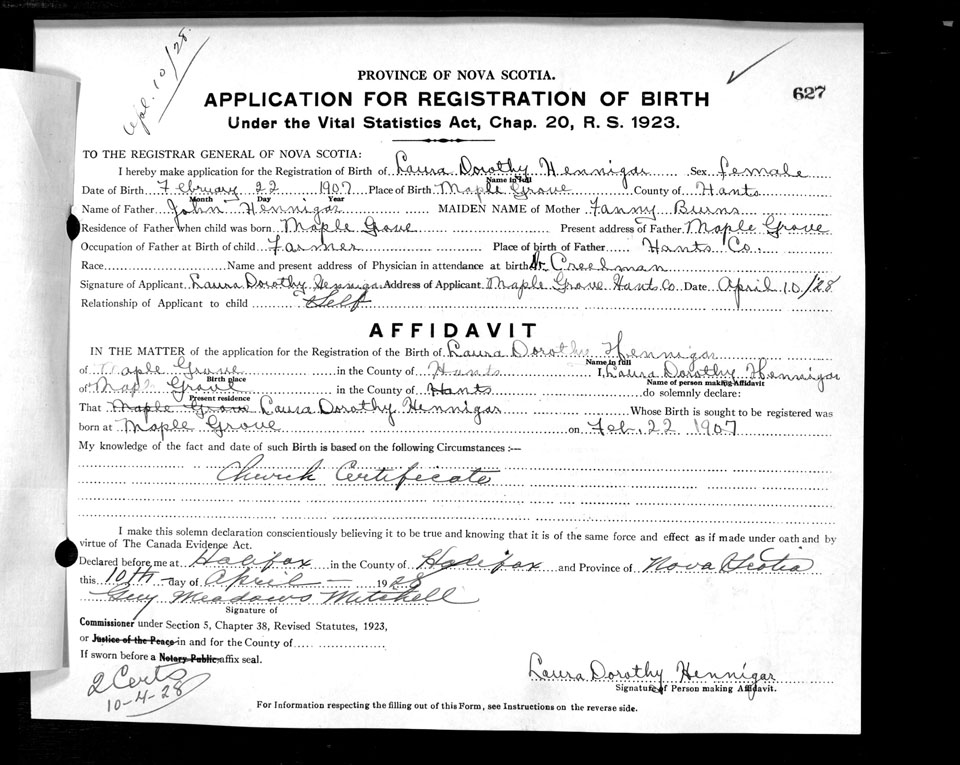 Apl. 10/28.
PROVINCE OF NOVA SCOTIA.
627
APPLICATION FOR REGISTRATION OF BIRTH
Under the Vital Statistics Act, Chap. 20, R. S. 1923.
TO THE REGISTRAR GENERAL OF NOVA SCOTIA:
I hereby make application for the Registration of Birth of Laura Dorothy Hennigar Sex female
Name in full
Date of Birth February 22 1907 Place of Birth Maple Grove County of Hants
Month Day Year
Name of Father John Hennigar MAIDEN NAME of Mother Fanny Burns
Residence of Father when child was born Maple Gove Present address of Father Maple Grove
Occupation of Father at Birth of child Farmer Place of birth of Father Hants Co.
Race Name and present address of Physician in attendance at birth Dr. Creelman
Signature of Applicant Laura Dorothy Hennigar Address of Applicant Maple Grove Hants Co Date April 10/28
Relationship of Applicant to child Self
AFFIDAVIT
IN THE MATTER of the application for the Registration of the Birth of Laura Dorothy Hennigar
Name in full
of Maple Grove in the County of Hants I, Laura Dorothy Hennigar
Birth place Name of person making Affidavit
of Maple Grove in the County of Hants do solemnly declare:
Present residence
That Maple Grove Laura Dorothy Hennigar Whose Birth is sought to be registered was
born at Maple Grove on Feb. 22 1907
My knowledge of the fact and date of such Birth is based on the following Circumstances :—
Church Certificate
I make this solemn declaration conscientiously believing it to be true and knowing that it is of the same force and effect as if made under oath and by
virtue of The Canada Evidence Act.
Declared before me at Halifax in the County of Halifax and Province of Nova Scotia
this 10th day of April 1928
Guy Meadows Mitchell
Signature of
Commissioner under Section 5, Chapter 38, Revised Statutes, 1923,
or Justice of the Peace in and for the County of
If sworn before a Notary Public affix seal.
2 Certs
10-4-28
Laura Dorothy Hennigar
Signature of Person making Affidavit.
For Information respecting the filling out of this Form, see Instructions on the reverse side.